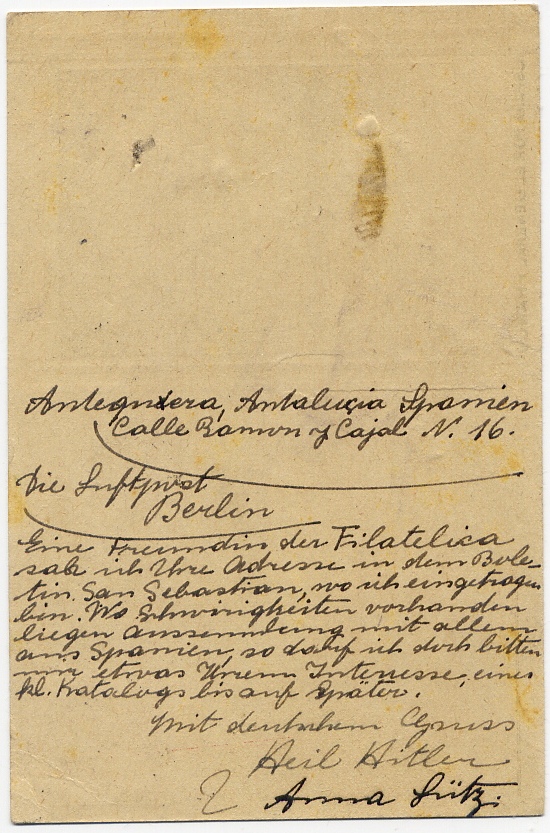 Antequxera, Antalucia Spanien
Calle Ramon y Cajal N. 16.
Die Luftpost
Berlin
Eine Freundin der Filatelica
sah ich Ihre Adresse in dem Bole-
tin. San Sebastian, wo ich eingetragen
bin. Wo Schwirigheiten vorhanden
liegen Aussenndung mit allem
aus Spanien, so darf ich doch bitten
mir etwas Ihrem Interesse, eines
kl. Katalogs bis auf Später.
Mit deutschem Gruss
Heil Hitler
Anna